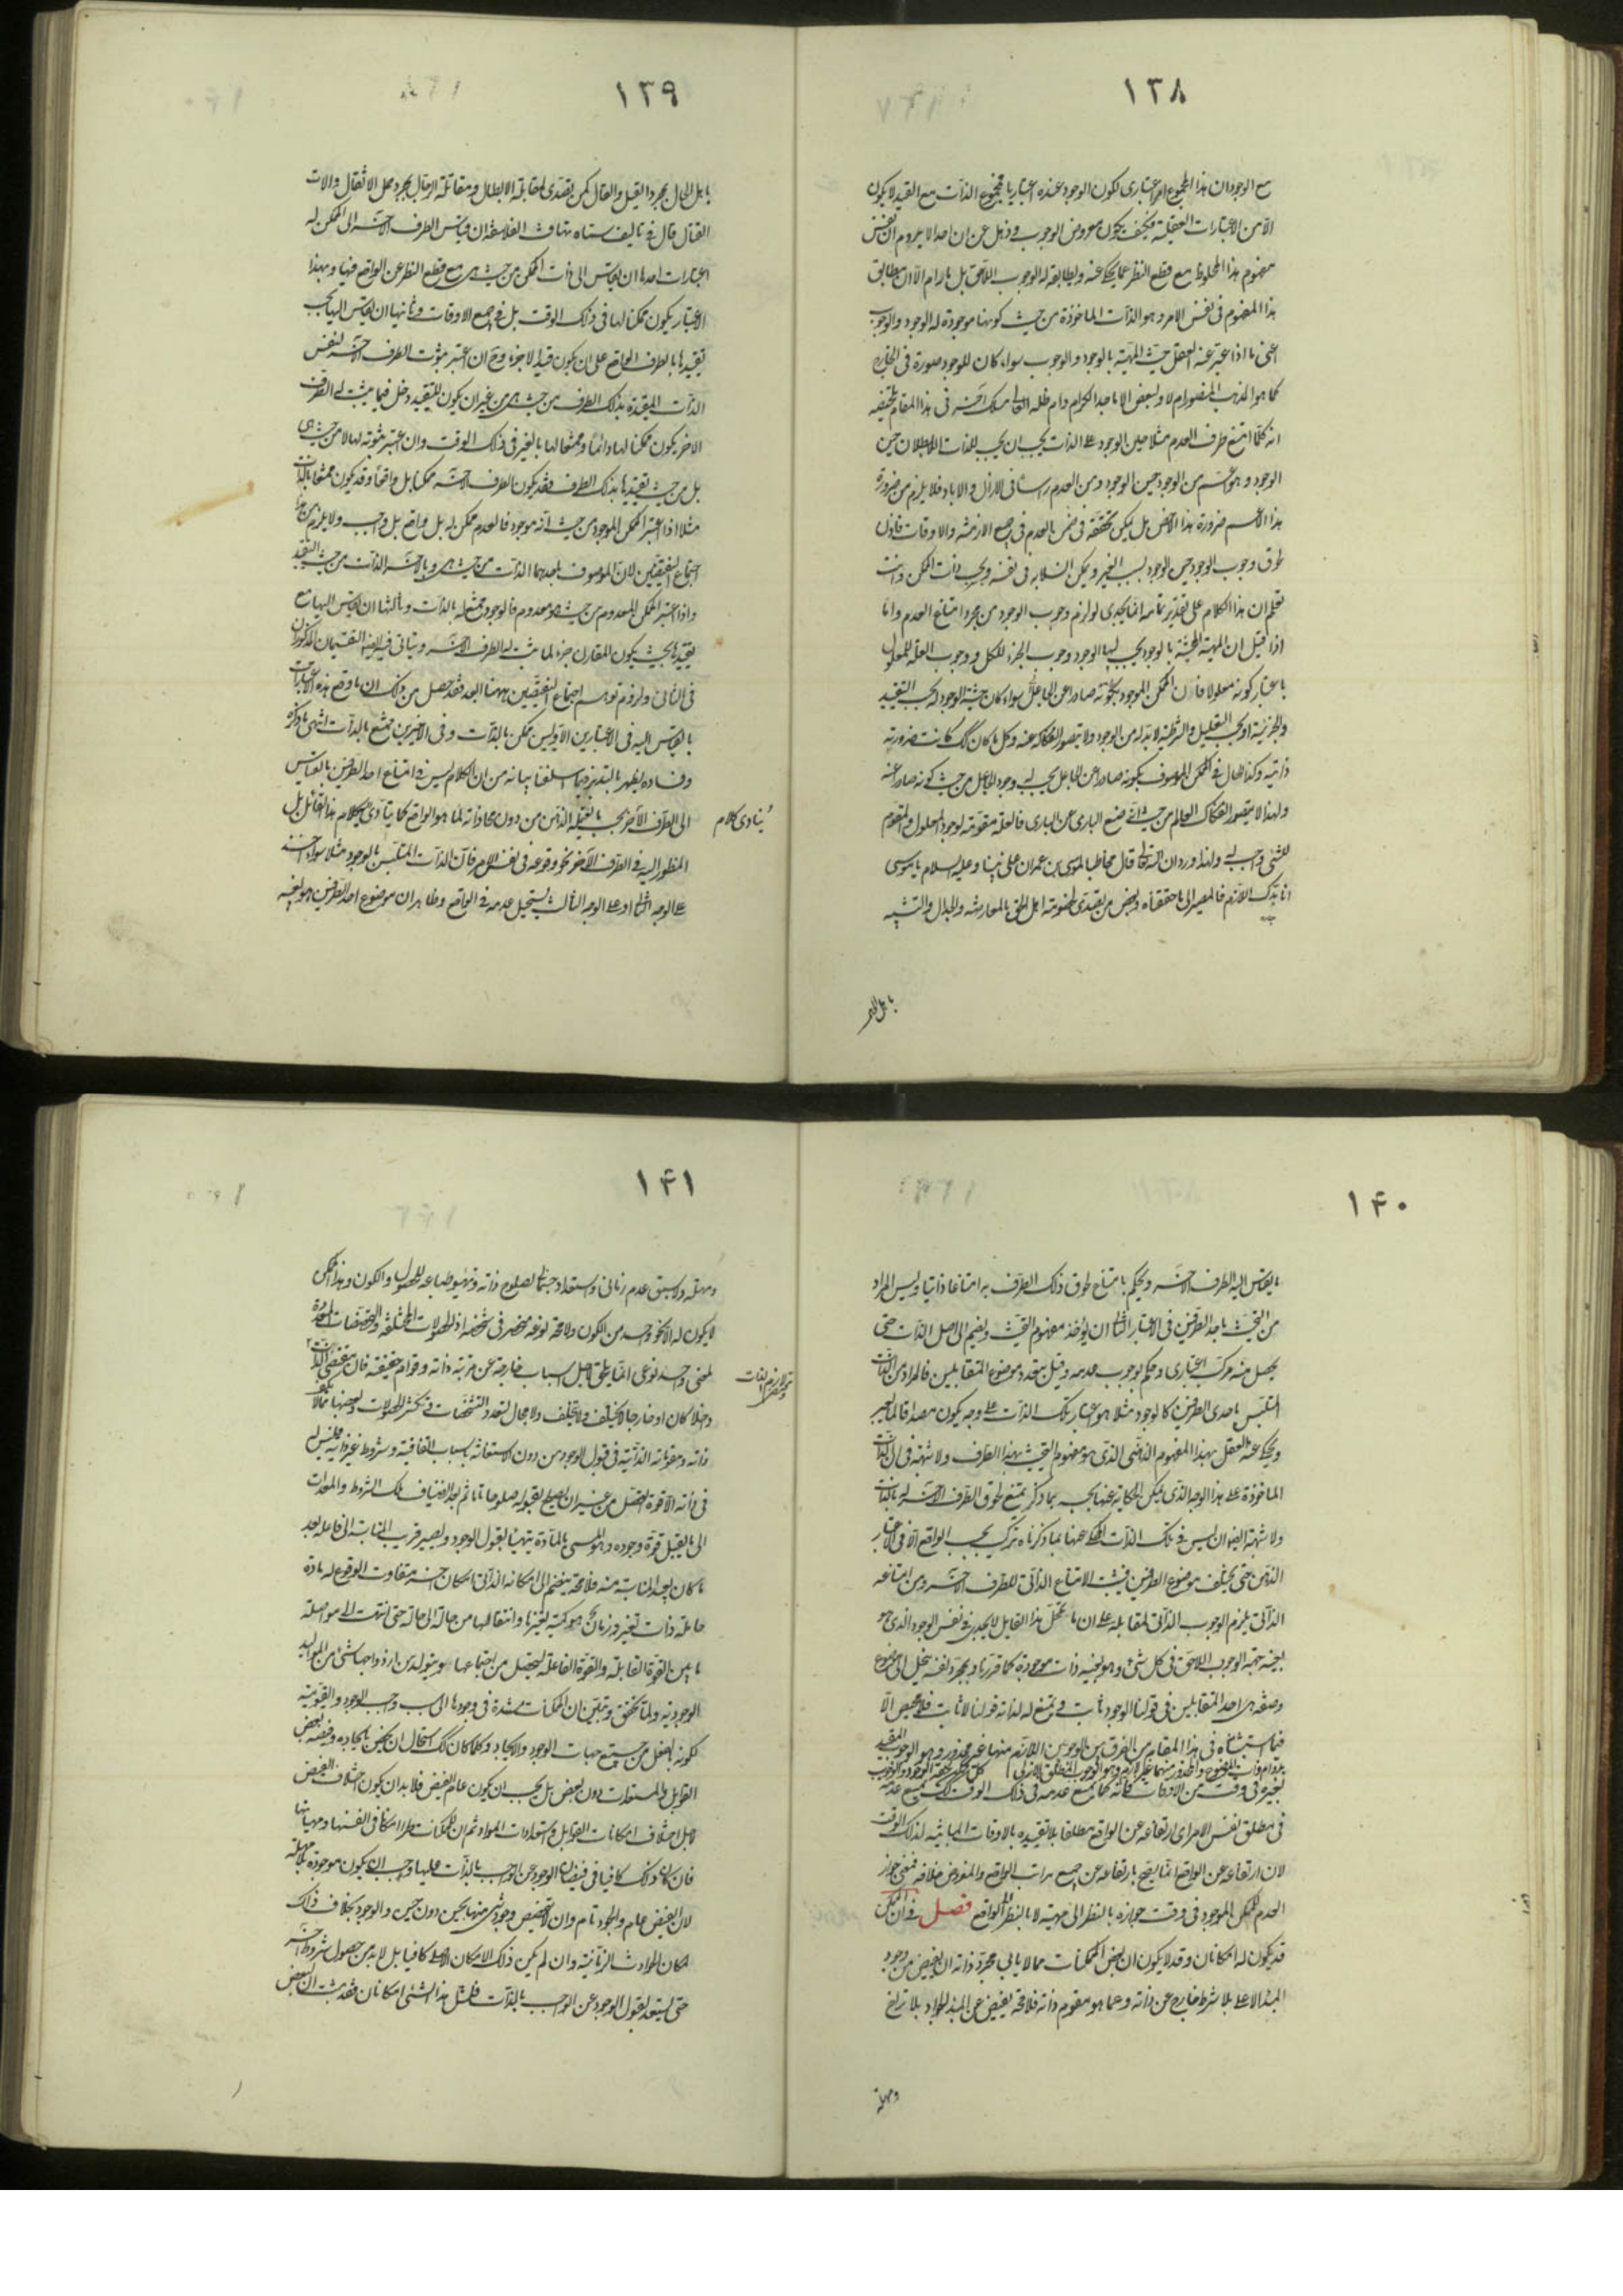 ١٣٨
مع الوجود ان هذا المجموع امر اعتبارى لكون الوجود عنده اعتباريا فمجموع الذات مع القيد لا يكون
الا من الاعتبارات العقلية فكيف يكون معروض الوجوب وذهل عن ان احدا لا يروم ان نفس
مفهوم هذا الملحوظ مع قطع النظر عما يحكى عنه ويطابقه له الوجوب اللاحق بل يرام الا ان مطابق
هذا المفهوم فى نفس الامر وهو الذات الماخوذة من حيث كونها موجودة له الوجود والوجوب
اعنى ما اذا عبر عنه العقل حيث المهية بالوجود والوجوب سواء كان للوجود صورة فى الخارج
كما هو المذهب المنصور ام لا ولبعض الاماجد الكرام دام ظله العالى مسلك اخر فى هذا المقام تلخيصه
انه كلما امتنع طرف العدم مثلا حين الوجود على الذات يجب ان يجب للذات اللابطلان حين
الوجود وهو اعم من الوجود حين الوجود ومن العدم راسا فى الازل والاباد فلا يلزم من ضرورة
هذا الاعم ضرورة هذا الاخص بل يمكن تحققه فى ضمن العدم فى جميع الازمنة والاوقات فاذن
طوق وجوب الوجود حين الوجود بسبب الغير ويمكن انسلابه فى نفسه وبحسب ذات الممكن وانت
تعلم ان هذا الكلام على تقدير تمامه انما يجدى لو لزم وجوب الوجود من مجرد امتناع العدم واما
اذا قيل ان المهية المحيثة بالوجود يجب لها الوجود وجوب الجزء للكل ووجوب العلة للمعلول
باعتبار كونه معلولا فان الممكن الموجود بكونه صادرا عن الجاعل سواء كان حيثية الوجود له بحسب التقييد
والجزئية او بحسب التعليل والشرطية لابد له من الوجود ولا يتصور انفكاكه عنه وكل ما كان كك كانت ضرورته
ذاتية وكذا الحال فى الممكن الموصوف بكونه صادرا عن الجاعل يجب له وجود الجاعل من حيث كونه صادرا عنه
ولهذا لا يتصور انفكاك العالم من حيث انه صنع البارى عن البارى فالعلة مقومة لوجود المعلول والمقوم
للشىء واجب له ولهذا ورد ان الله تعالى قال مخاطبا لموسى بن عمران على نبينا وعليه السلام يا موسى
انا بدك اللازم فالمصير الى ما حققناه وبعض من يقصدى لخصومة اهل الحق بالمعارضة والجدال والتشبه
باهل الحال
١٣٩
باهل الحال بمجرد القيل والقال كمن تصدى لمقابلة الابطال ومقاتلة الرجال بمجرد حمل الاثقال والات
القتال قال فى تاليف سماه تهافت الفلاسفة ان قياس الطرف الاخر الى الممكن له
اعتبارات احدها ان يقاس الى ذات الممكن من حيث هى مع قطع النظر عن الواقع فيها وبهذا
الاعتبار يكون ممكنا لها فى ذلك الوقت بل فى جميع الاوقات وثانيها ان يقاس اليها بحسب
تقييدها بالطرف الواقع على ان يكون قيدا لا جزءا وح ان اعتبر ثبوت الطرف الاخر لنفس
الذات المقيدة بذلك الطرف من حيث هى من غير ان يكون للتقييد دخل فيما يثبت له الطرف
الاخر يكون ممكنا لها دائما وممتنعا لها بالغير فى ذلك الوقت وان اعتبر ثبوته لها لا من حيث هى
بل من حيث تقييدها بذلك الطرف فقد يكون الطرف الاخر ممكنا بل واقعا وقد يكون ممتنعا بالذات
مثلا اذا اعتبر الممكن الموجود من حيث انه موجود فالعدم ممكن له بل واقع بل واجب ولا يلزم من هذا
اجتماع النقيضين لان الموصوف باحدهما الذات من حيث هى وبالاخر الذات من حيث التقييد
واذا اعتبر الممكن المعدوم من حيث هو معدوم فالوجود ممتنع له بالذات وثالثها ان يقاس اليها مع
تقييدها بحيث يكون المقارن جزءا لما ثبت له الطرف الاخر ويتاتى فيه ايضا التقسيمان المذكوران
فى الثانى ولزوم توهم اجتماع النقيضين ههنا ابعد فقد حصل من ذلك ان ما وقع هذه الاعتبارات
بالقياس اليه فى الاعتبارين الاولين ممكن بالذات وفى الاخيرين ممتنع بالذات انتهى ما ذكره
وفساده يظهر بالتدبر فيما سلفنا بيانه من ان الكلام ليس فى امتناع احد الطرفين بالقياس
الى الطرف الاخر بحسب ما يعقله الذهن من دون محاذاته لما هو الواقع كما يتادى كلام هذا القائل بل
ينادى كلام
المنظور اليه فى الطرف الاخر نحو وقوعه فى نفس الامر فان الذات المتلبس بالوجود مثلا سواء اخذ
على الوجه الثانى او على الوجه الثالث يستحيل عدمه فى الواقع وظاهر ان موضوع احد الطرفين هو بعينه
١٤٠
ما يقاس اليه الطرف الاخر ويحكم بامتناع لحوق ذلك الطرف به امتناعا ذاتيا وليس المراد
من التحيث باحد الطرفين فى الاعتبار الثانى ان يؤخذ مفهوم التحيث ويضم الى اصل الذات حتى
يحصل منه مركب اعتبارى وحكم بوجوب عدمه وقيل بتعدد موضوع المتقابلين فالمراد من الذات
المتلبس باحدى الطرفين كالوجود مثلا هو اعتبار تلك الذات على وجه يكون مصداقا لما يعبر
ويحكى عنه العقل بهذا المفهوم الذهنى الذى هو مفهوم التحيث بهذا الطرف ولا شبهة فى ان الذات
الماخوذة على هذا الوجه الذى يمكن الحكاية عنها بحسبه بما ذكر يمتنع لحوق الطرف الاخر له بالذات
ولا شبهة ايضا ان ليس فى تلك الذات المحكى عنها بما ذكرناه تركيب بحسب الواقع الا فى الاعتبار
الذهن حتى يختلف موضوع الطرفين فيثبت الامتناع الذاتى للطرف الاخر ومن امتناعه
الذاتى يلزم الوجوب الذاتى لمقابله على ان ما تمحل هذا القايل لا يجدى فى نفس الوجود الذى هو
بعينه جهة الوجوب اللاحق فى كل شىء وهو بعينه ذات موجودة كما قررنا وبمجرد نفسه ينحل الى موضوع
وصفة هى احد المتقابلين فى قولنا الوجود ثابت ويمتنع له لذاته قولنا لاثابت فلا محيص الا
فيما استثناه فى هذا المقام من الفرق بين الوجوبين اللازم منها غير محذور وهو الوجوب المقيد
بدوام ذات الموضوع والمحذور منهما غير لازم وهو الوجوب المطلق الازلى
لغيره فى وقت من الاوقات فانه كما يمتنع عدمه فى ذلك الوقت كك يمتنع عدمه
فى مطلق نفس الامر اى ارتفاعه عن الواقع مطلقا بلا تقييده بالاوقات المباينة لذلك الوقت
لان ارتفاعه عن الواقع انما يصح بارتفاعه عن جميع مراتب الواقع والمفروض خلافه فمعنى جواز
العدم للممكن الموجود فى وقت جوازه بالنظر الى مهيته لا بالنظر الى الواقع فصل فى ان الممكن
قد يكون له امكانان وقد لا يكون ان بعض الممكنات مما لا يابى مجرد ذاته ان يفيض من وجود
المبدا الاعلى بلا شرط خارج عن ذاته وعما هو مقوم ذاته فلا محة يفيض عن المبدا الجواد بلا تراخ
ومهلة
١٤١
ومهلة ولا سبق عدم زمانى واستعداد جسمانى لصلوح ذاته وتهيؤ طباعه للحصول والكون وهذا الممكن
لا يكون له الا نحو واحد من الكون ولا محة نوعه منحصر فى شخصه اذ الحصولات المختلفة والتخصصات المتعددة
لمعنى واحد نوعى انما يلحق لاجل اسباب خارجة عن مرتبة ذاته وقوام حقيقته فان مقتضى الذات
ولازم الذات
داخلا كان او خارجا لا يختلف ولا يتخلف ولا مجال لتعدد التشخصات وتكثر الحصولات وبعضها مما لا يكفى
ذاته ومقوماته الذاتية فى قبول الوجود من دون الاستعانة باسباب اتفاقية وشروط غير ذاتية فليس له
فى ذاته الا قوة التحصل من غير ان يصلح لقبوله صلوحا تاما ثم بعد انضياف تلك الشروط والمعدات
الى ما يقبل قوة وجوده وهو المسمى بالمادة يتهيا لقبول الوجود ويصير قريب المناسبة الى فاعله بعد
ما كان بعيد المناسبة منه فلا محة ينضم الى امكانه الذاتى امكان اخر متفاوت الوقوع له مادة
حاملة ذات تغير وزمان هو كمية تغيرها وانتقالها من حالة الى حالة حتى انتهت الى مواصلة
ما بين القوة القابلة والقوة الفاعلة ليتحصل من اجتماعهما ويتولد من ازدواجهما شىء من المواليد
الوجودية ولما تحقق وتبين ان الممكنات مستندة فى وجودها الى سبب واجب الوجود والقيومية
لكونه بالفعل من جميع جهات الوجود والايجاد وكلما كان كك استحال ان يخص بايجاده وفيضه بعض
القوابل والمستعدات دون بعض بل يجب ان يكون عام الفيض فلابد ان يكون اختلاف الفيض
لاجل اختلاف امكانات القوابل واستعدادات المواد ثم ان للممكنات طرا امكانا فى انفسها ومهياتها
فان كان ذلك كافيا فى فيضان الوجود عن الواجب بالذات عليها وجب ان يكون موجودة بلا مهلة
لان الفيض عام والجود تام وان لا يتخصص وجود شىء منها بحين دون حين والوجود بخلاف ذلك
لمكان الحوادث الزمانية وان لم يكن ذلك الامكان الاصلى كافيا بل لابد من حصول شروط اخر
حتى يستعد لقبول الوجود عن الواجب بالذات فلمثل هذا الشىء امكانان فقد ثبت ان لبعض